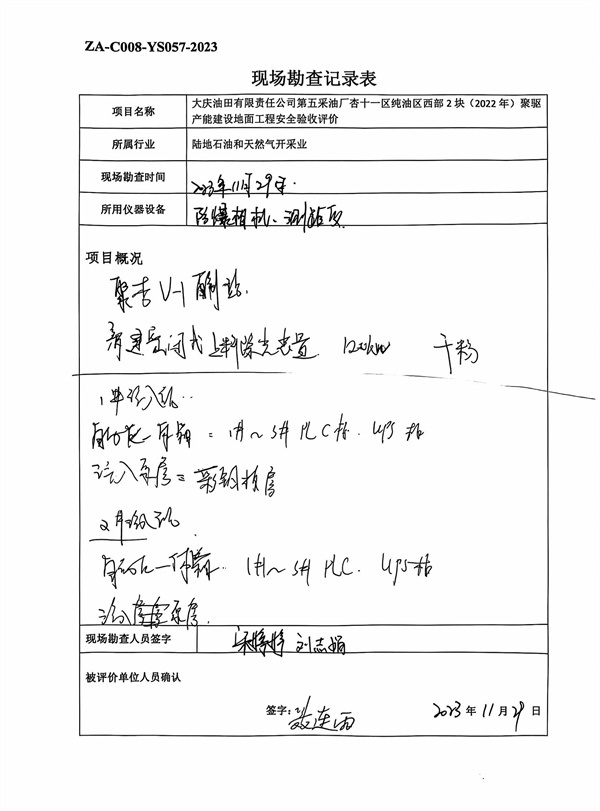 ZA-C008-YS057-2023
现场勘查记录表
项目名称
大庆油田有限责任公司第五采油厂杏十一区纯油区西部 2 块（2022 年）聚驱
产能建设地面工程安全验收评价
所属行业
陆地石油和天然气开采业
现场勘查时间
2023年11月29日.
所用仪器设备
防爆相机、测距仪
项目概况
聚杏V-1配制站
新建 上料除尘装置 干粉
1#注入站..
自动化一体 = 1#~5# PLC柜. UPS柜
注入泵房 = 彩钢板房
2#注入站
自动化一体 1#~5# PLC. UPS柜
泵房.
现场勘查人员签字
刘志娟
被评价单位人员确认
签字：
2023 年 11 月 29 日